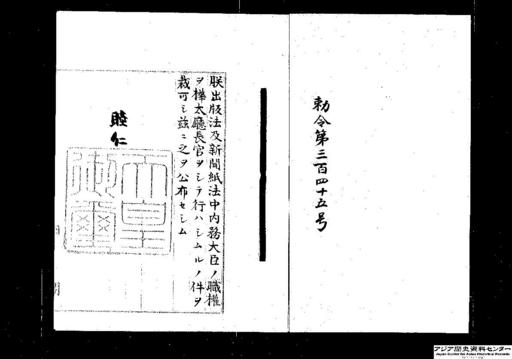 勅令第三百四十五号
朕出版法及新聞紙法中内務大臣ノ職権
ヲ樺太廳長官ヲシテ行ハシムルノ件ヲ
裁可シ茲ニ之ヲ公布セシム
睦仁
天皇
御璽
アジア歴史資料センター
Japan Center for Asian Historical Records